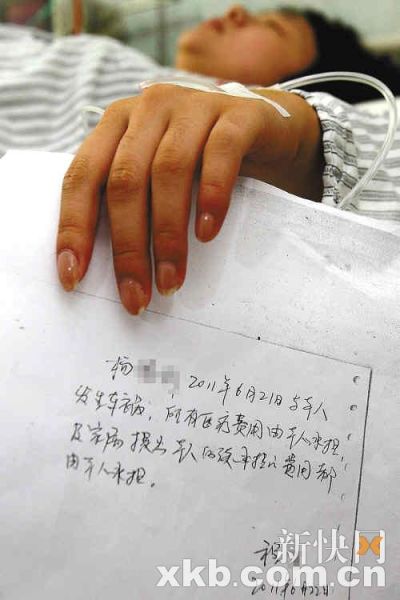 新快网
杨 2011年6月21日与本人
发生车祸,所有医疗费用由本人承担,
及家属损失 本人 承担的费用都
由本人承担.
2011年6月22日
新快网
xkb.com.cn